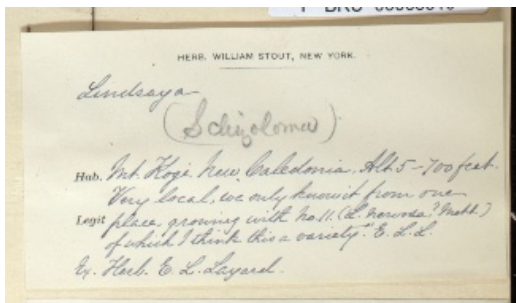 HERB. WILLIAM STOUT, NEW YORK.
Lindsaya
(Schizoloma)
Hab. Mt. Kogi New Caledonia. Alt 5-700 feet.
Very local, we only know it from one
Legit place, growing with No. 11. (L. ? Mett.)
of which I think this a variety." E. L. L.
Ex. Herb. E. L. Layard.